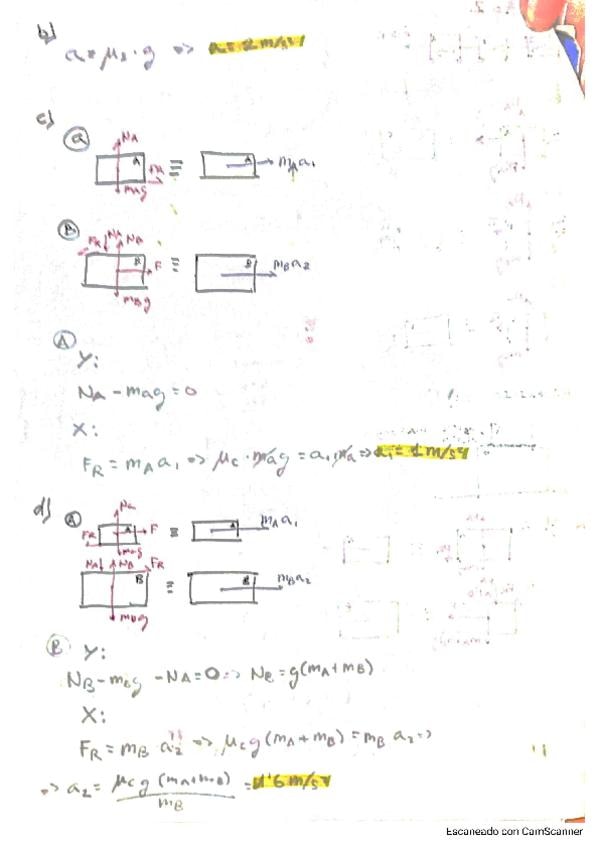 b)
a = μs · g => a = 2 m/s²
c)
A NA A FR mAg ≡ A mA a1
B FR NA NB B F mBg ≡ B mB a2
A
Y:
NA - mAg = 0
X:
FR = mA a1 => μc · mAg = a1 mA => a1 = 1 m/s²
d)
A NA FR A F mAg ≡ A mA a1
NA NB FR B mBg ≡ B mB a2
B Y:
NB - mBg - NA = 0 => NB = g(mA + mB)
X:
FR = mB a2 => μc g (mA + mB) = mB a2 =>
=> a2 = μc g (mA + mB) / mB = 1'6 m/s²
Escaneado con CamScanner